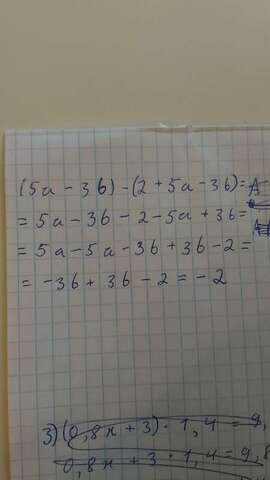 (5a - 3b) - (2 + 5a - 3b) =
= 5a - 3b - 2 - 5a + 3b =
= 5a - 5a - 3b + 3b - 2 =
= -3b + 3b - 2 = -2
3) (0,8x + 3) · 1,4 = 9,
0,8x + 3 · 1,4 = 9,8